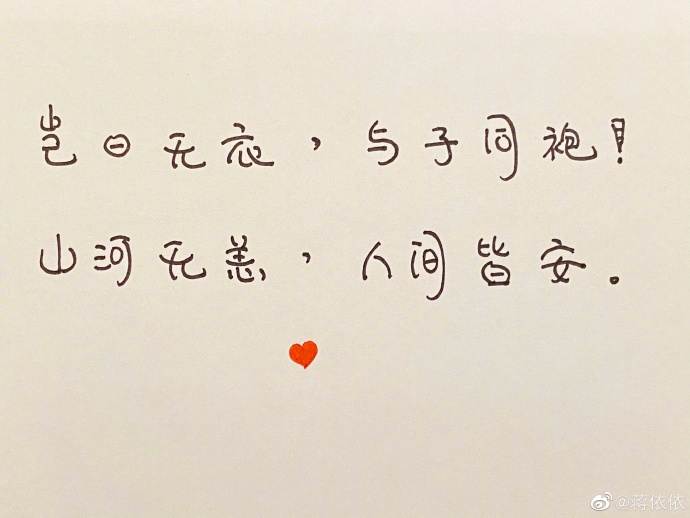 岂曰无衣，与子同袍！
山河无恙，人间皆安。
@蒋依依